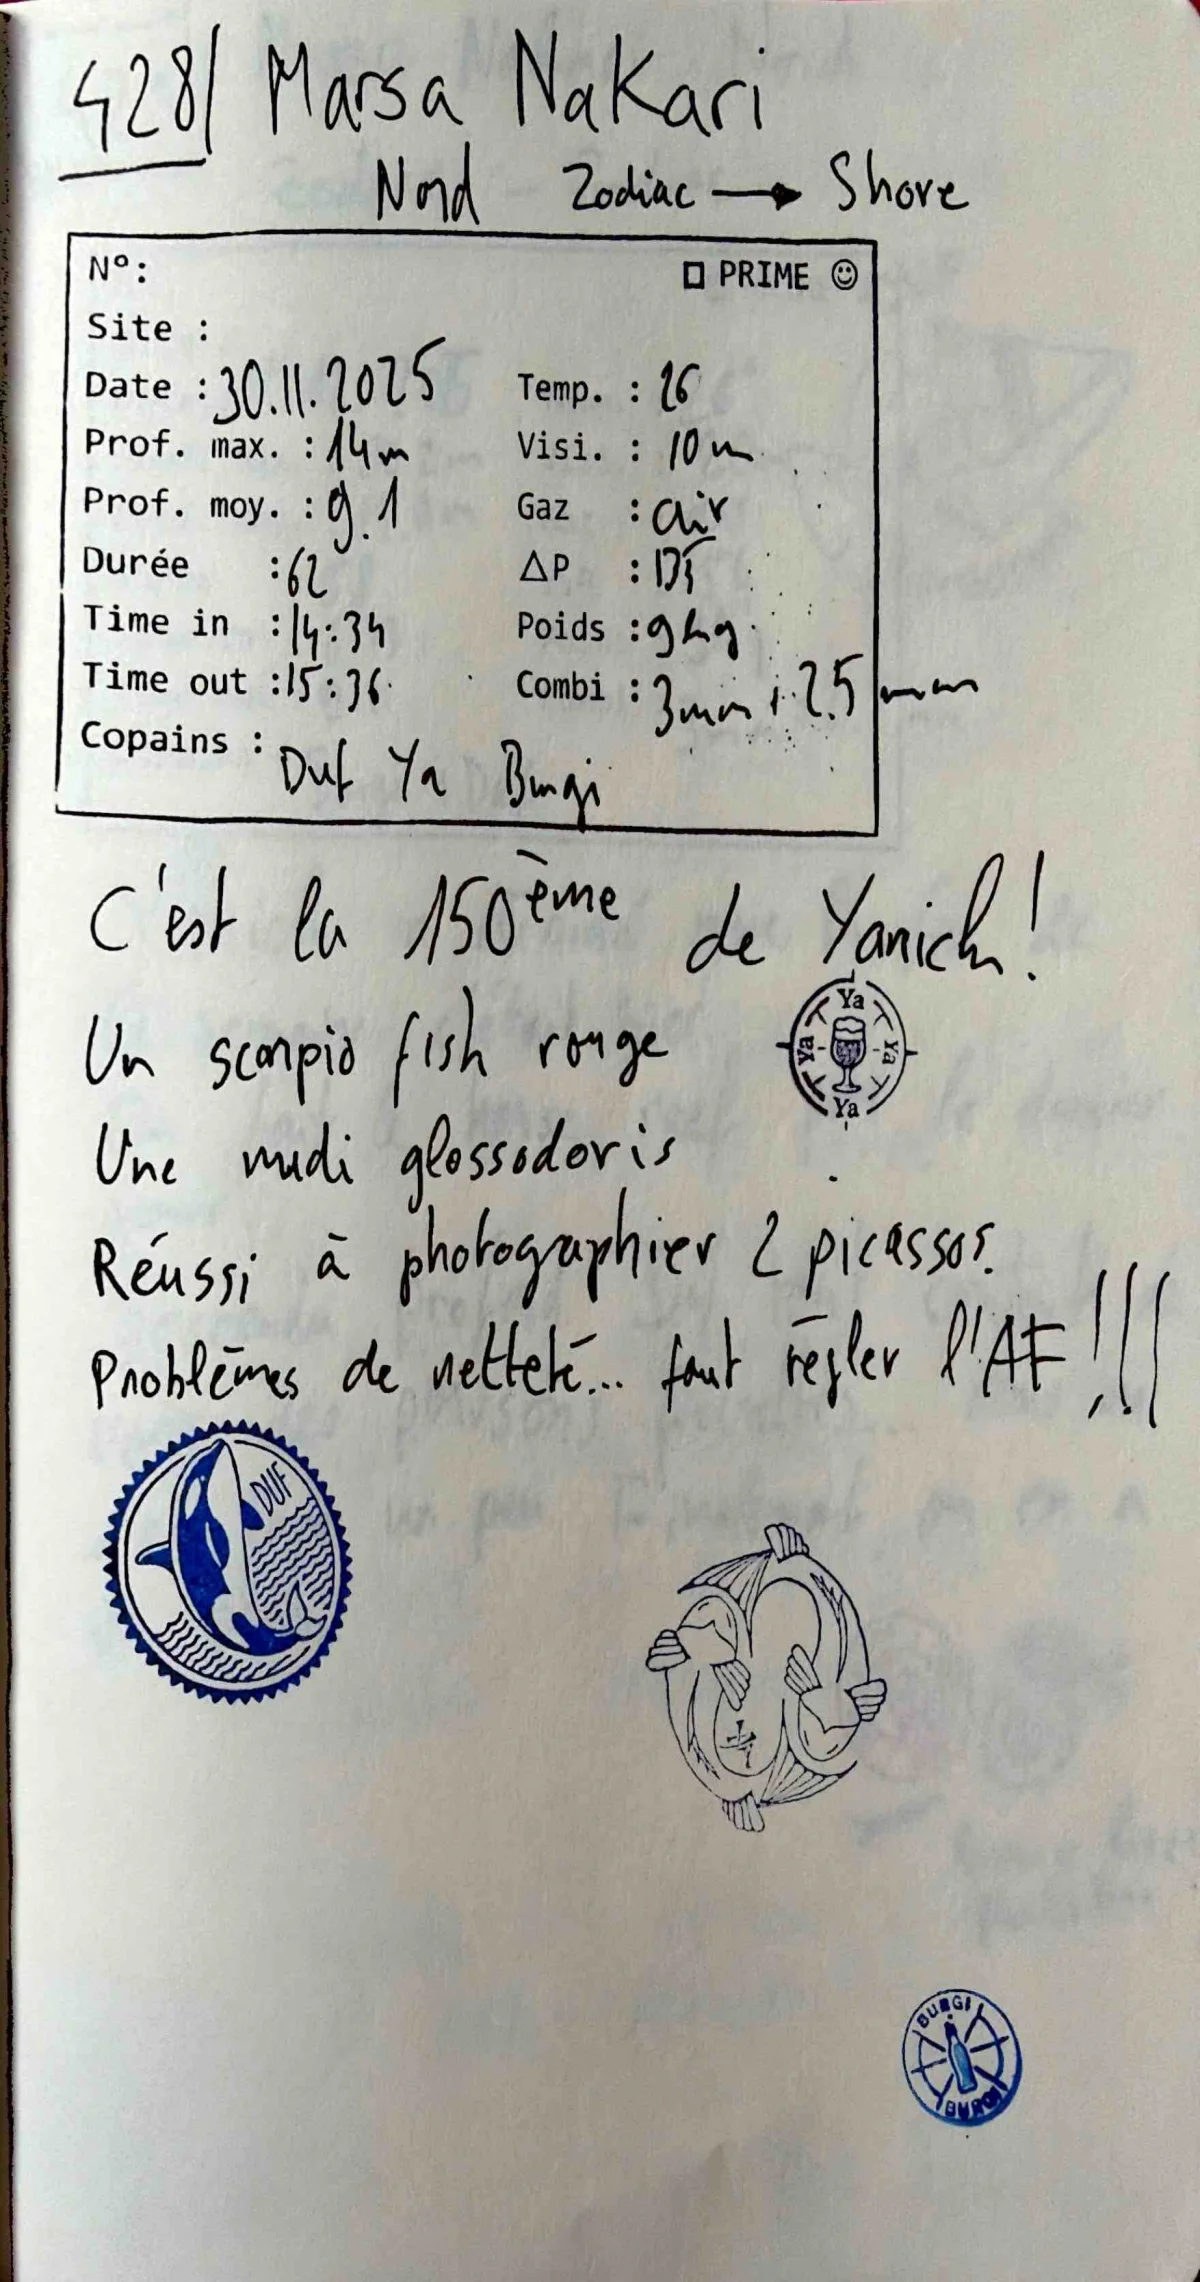 428/ Marsa Nakari
Nord Zodiac → Shore
N°: □ PRIME ☺
Site :
Date : 30.11.2025 Temp. : 26
Prof. max. : 14m Visi. : 10m
Prof. moy. : 9.1 Gaz : air
Durée : 62 ΔP : 135
Time in : 14:34 Poids : 9kg
Time out : 15:36 Combi : 3mm + 2.5 mm
Copains : Duf Ya Burgi
C'est la 150ème de Yanick!
Ya Ya Ya Ya
Un scorpio fish rouge
Une nudi glossodoris
Réussi à photographier 2 picassos.
Problèmes de netteté... faut régler l'AF!!!
DUF
BURGI
BURGI